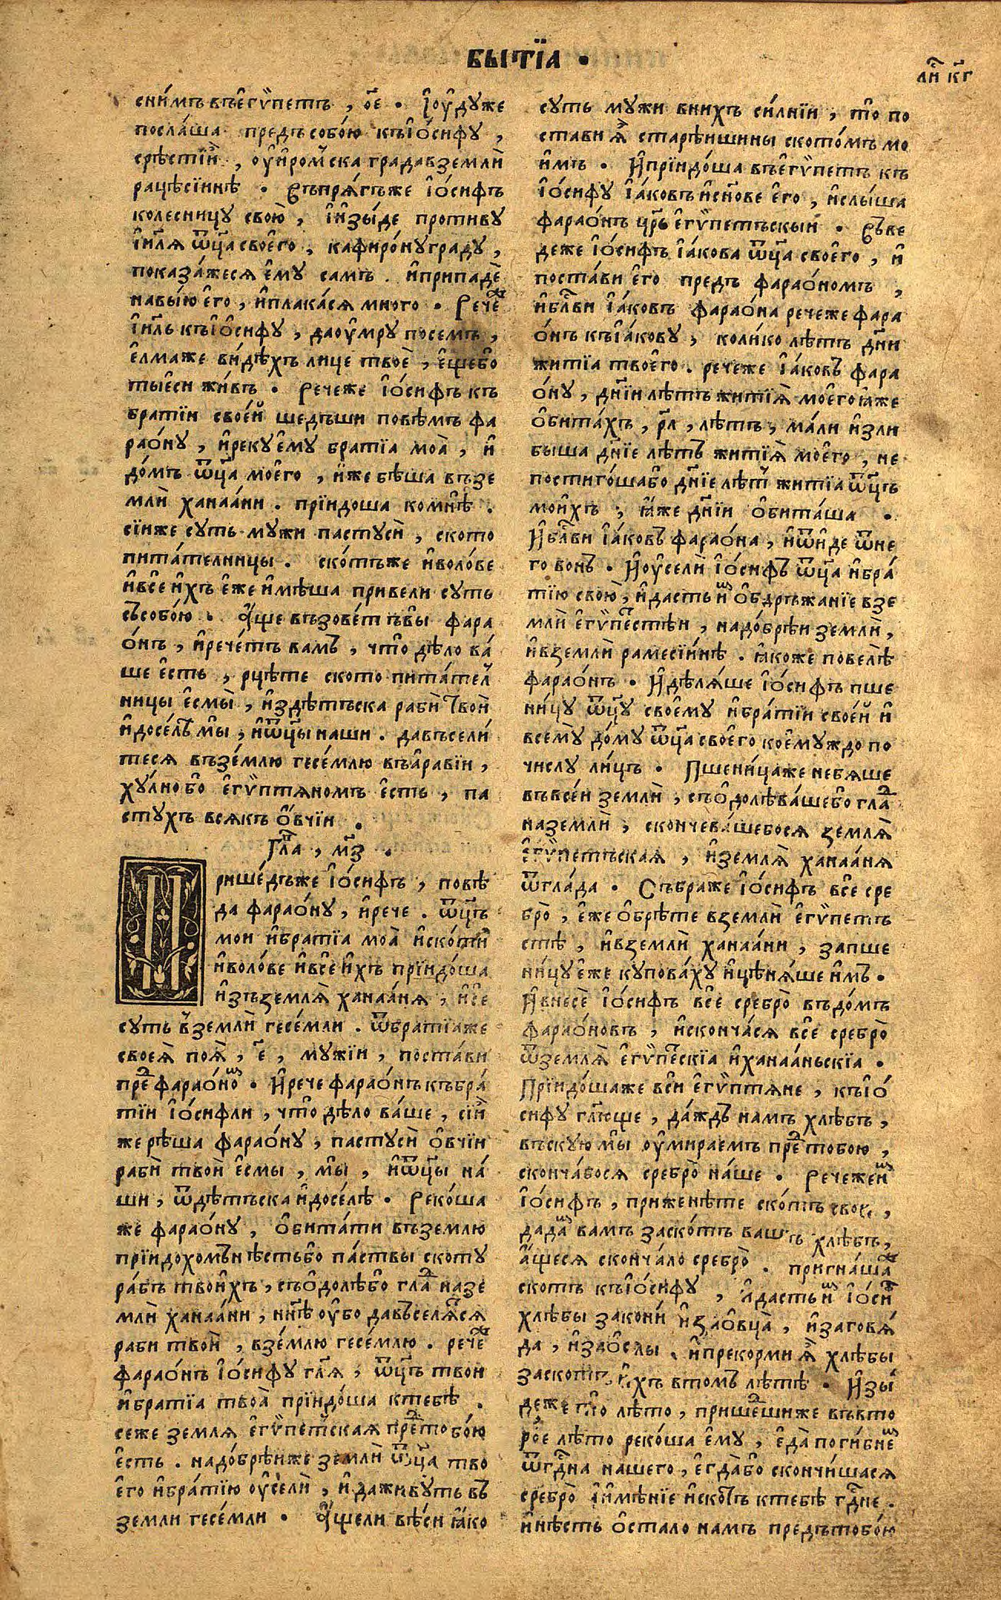 БЫТЇА ·
лⷭ҇ кг
снимъ въегѷпетъ , ое҃ · Їоудуже
посла́ша предъ собою къїо́сифу ,
срѣстїи , оуи҆ром̾ска града въземлѝ
рацѣсїиинѣ · Съпряг̾же ї҆о́сифъ
колесницу свою̀ , и҆изы́де противу
ї҆и҃ля ѿц҃а своего , кафиро́нуграду ,
показа́жеся е҆му самъ . и҆припадѐ
навы́ю его , и҆плакася много · Речеⷤ
ї҆и҃ль къїо҆сифу , даоу҆мру посемъ ,
е҆лмаже видѣхъ лице твоѐ , е҆щебо
тыеси жи́въ · Речеже ї҆о́сифъ къ
братїи своей шедъши повѣмъ фа
рао́ну , и҆рекуе҆му братїа моа̀ , и҆
до́мъ ѿц҃а моего , и҆же бѣша въ зе
мли ханаа́ни . прїидоша комнѣ̀ .
сїиже суть мужи пастусѝ , ското
пита́телницы . ско́тъже и҆воло́ве
и҆все и҆хъ е҆же и҆мѣша привели суть
съсобо́ю . А҆ще възове́тъ вы фара
о́нъ , и҆рече́тъ вамъ , что̀ дѣло ва́
ше е҆сть , рцѣте ското пита́тел
ницы е҆смы̀ , и҆здѣтъска рабѝ твоѝ
и҆досе́лѣ мы̀ , и҆ѿц҃ы наши . давъсели́
теся въземлю гесе́млю въа҆равїи ,
ху́лно бо е҆гѷптяномъ е҆сть , па
стухъ всякъ о҆́вчїи .
Гла́ , м҃з .
Прише́дъже ї҆о́сифъ , повѣ́
да фарао́ну , и҆рече . ѿц҃ъ
мои и҆братїа моа̀ и҆скоти
и҆воло́ве и҆все и҆хъ прїидо́ша
и҆зъземля̀ ханаа́ня , и҆се
суть в̾землѝ гесе́мли . ѿбратїаже
своея̀ поя̀ , е҃ , мужїи , поста́ви
преⷣ фарао́ноⷨ · И҆рече фарао́нъ къбра́
тїи ї҆о́сифли , что̀ дѣло ва́ше , сїи
же рѣша фарао́ну , пастусѝ о҆вчїи
рабѝ твоѝ е҆смы , мы̀ , и҆ѿц҃ы на́
ши , ѿдѣтъска и҆досе́лѣ · Реко́ша
же фарао́ну , о҆бита́ти въземлю
прїидохомъ нѣстьбо па́ствы скоту
ра́бъ твои́хъ , съо҆долѣ́бо глаⷣ назе
млѝ ханаа́ни , нн҃ѣ оу҆бо давъселя́ⷨся
раби твоѝ , вземлю гесе́млю . речеⷤ
фарао́нъ ї҆о́сифу гл҃я , ѿц҃ъ твои
и҆братїа твоа̀ прїидо́ша ктебѣ̀ .
сеже земля е҆гѷпетская преⷣтобо́ю
е҆сть . надо́брѣиже земли ѿц҃а тво
его и҆бра́тїю оу҆селѝ , и҆ даживуть въ
земли гесе́мли · А҆щели вѣ́си ꙗ҆ко
суть мужи внихъ си́лнїи , то̀ по
стави я҆̀ старѣ́ишины ското́мъ мо
и҆мъ · И҆прїидо́ша въегѷпетъ къ
ї҆о́сифу ї҆а́ковъ и҆сн҃ове его , и҆слы́ша
фарао́нъ цр҃ь е҆гѷпетъскыи · Съве
деже ї҆о́сифъ ї҆а́кова ѿц҃а своего , и҆
поста́ви его предъ фарао́номъ ,
и҆бл҃ви ї҆а́ковъ фарао́на речеже фара
о́нъ къїа́кову , колико лѣ́тъ дн҃и
житїа твоего . речеже ї҆а́ковъ фара
о́ну , дн҃їи лѣтъ житїя̀ моего ꙗ҆же
о҆бита́хъ , рл҃ , лѣтъ , ма́ли и҆зли
быша дн҃їе лѣтъ житїя̀ моего , не
постиго́шабо дн҃їе лѣⷮ житїа ѿц҃ъ
мои́хъ , ꙗ҆́же дн҃їи о҆бита́ша ·
И҆бл҃ви ї҆а́ковъ фарао́на , и҆ѿи́де ѿне
го вонъ · И҆оу҆селѝ ї҆о́сифъ ѿц҃а и҆бра́
тїю свою̀ , и҆дасть иⷨ о҆бдръжанїе взе
млѝ е҆гѷпе́стѣи , надо́брѣи землѝ ,
и҆вземлѝ рамесїи́инѣ . ꙗ҆коже повелѣ̀
фарао́нъ · И҆дѣля́ше ї҆о́сифъ пше
ни́цу ѿц҃у своему и҆бра́тїи своей и҆
всему́ до́му ѿц҃а своего коемуждо по
числу ли́цъ · Пшени́цаже небяше
въвсе́и землѝ , съо҆долѣва́шебо глаⷣ
наземлѝ , скончева́шебося земля̀
е҆гѷпетъская , и҆земля̀ ханаа́ня
ѿгла́да · Събраже ї҆о́сифъ всѐ сре
бро̀ , е҆же о҆брѣ́те вземлѝ е҆гѷпетъ
стѣ , и҆вземлѝ ханаа́ни , запше
ни́цу е҆же купова́ху и҆цѣня́ше и҆мъ ·
И҆внесѐ ї҆о́сифъ всѐ сребро̀ въдо́мъ
фарао́новъ , и҆сконча́ся всѐ сребро̀
ѿземля̀ е҆гѷпе́скїа и҆ханаа́ньскїа ·
Прїидо́шаже вси е҆гѷптяне , къїо́
сифу гл҃юще , да́ждь намъ хлѣбъ ,
въскую мы̀ оу҆мираемъ преⷣ тобою ,
сконча́бося сребро̀ на́ше · Речежеиⷨ
ї҆о́сифъ , приженѣ́те ско́тъ свои̇ ,
дадаⷨ вамъ заско́тъ вашъ хлѣбъ ,
а҆́щеся сконча́ло сребро̀ . пригна́шаⷤ
скотъ къїо́сифу , и҆дасть иⷨ ї҆о́сиⷴ
хлѣбы закони и҆заовца̀ , и҆заговя́
да , и҆заослы . и҆прекорми я҆̀ хлѣбы
заскотъ и҆хъ втомъ лѣ́тѣ · И҆зы́
деже то̀ лѣто , прише́шиже въвто
ро́е лѣто рекоша е҆му , е҆да̀ поги́бнеⷨ
ѿгдⷭ҇на нашего , е҆гда́бо сконча́шася
сребро̀ и҆имѣ́нїе и҆ско́тъ ктебѣ̀ гд҃не .
и҆нѣ́сть о҆стало намъ предътобо́ю